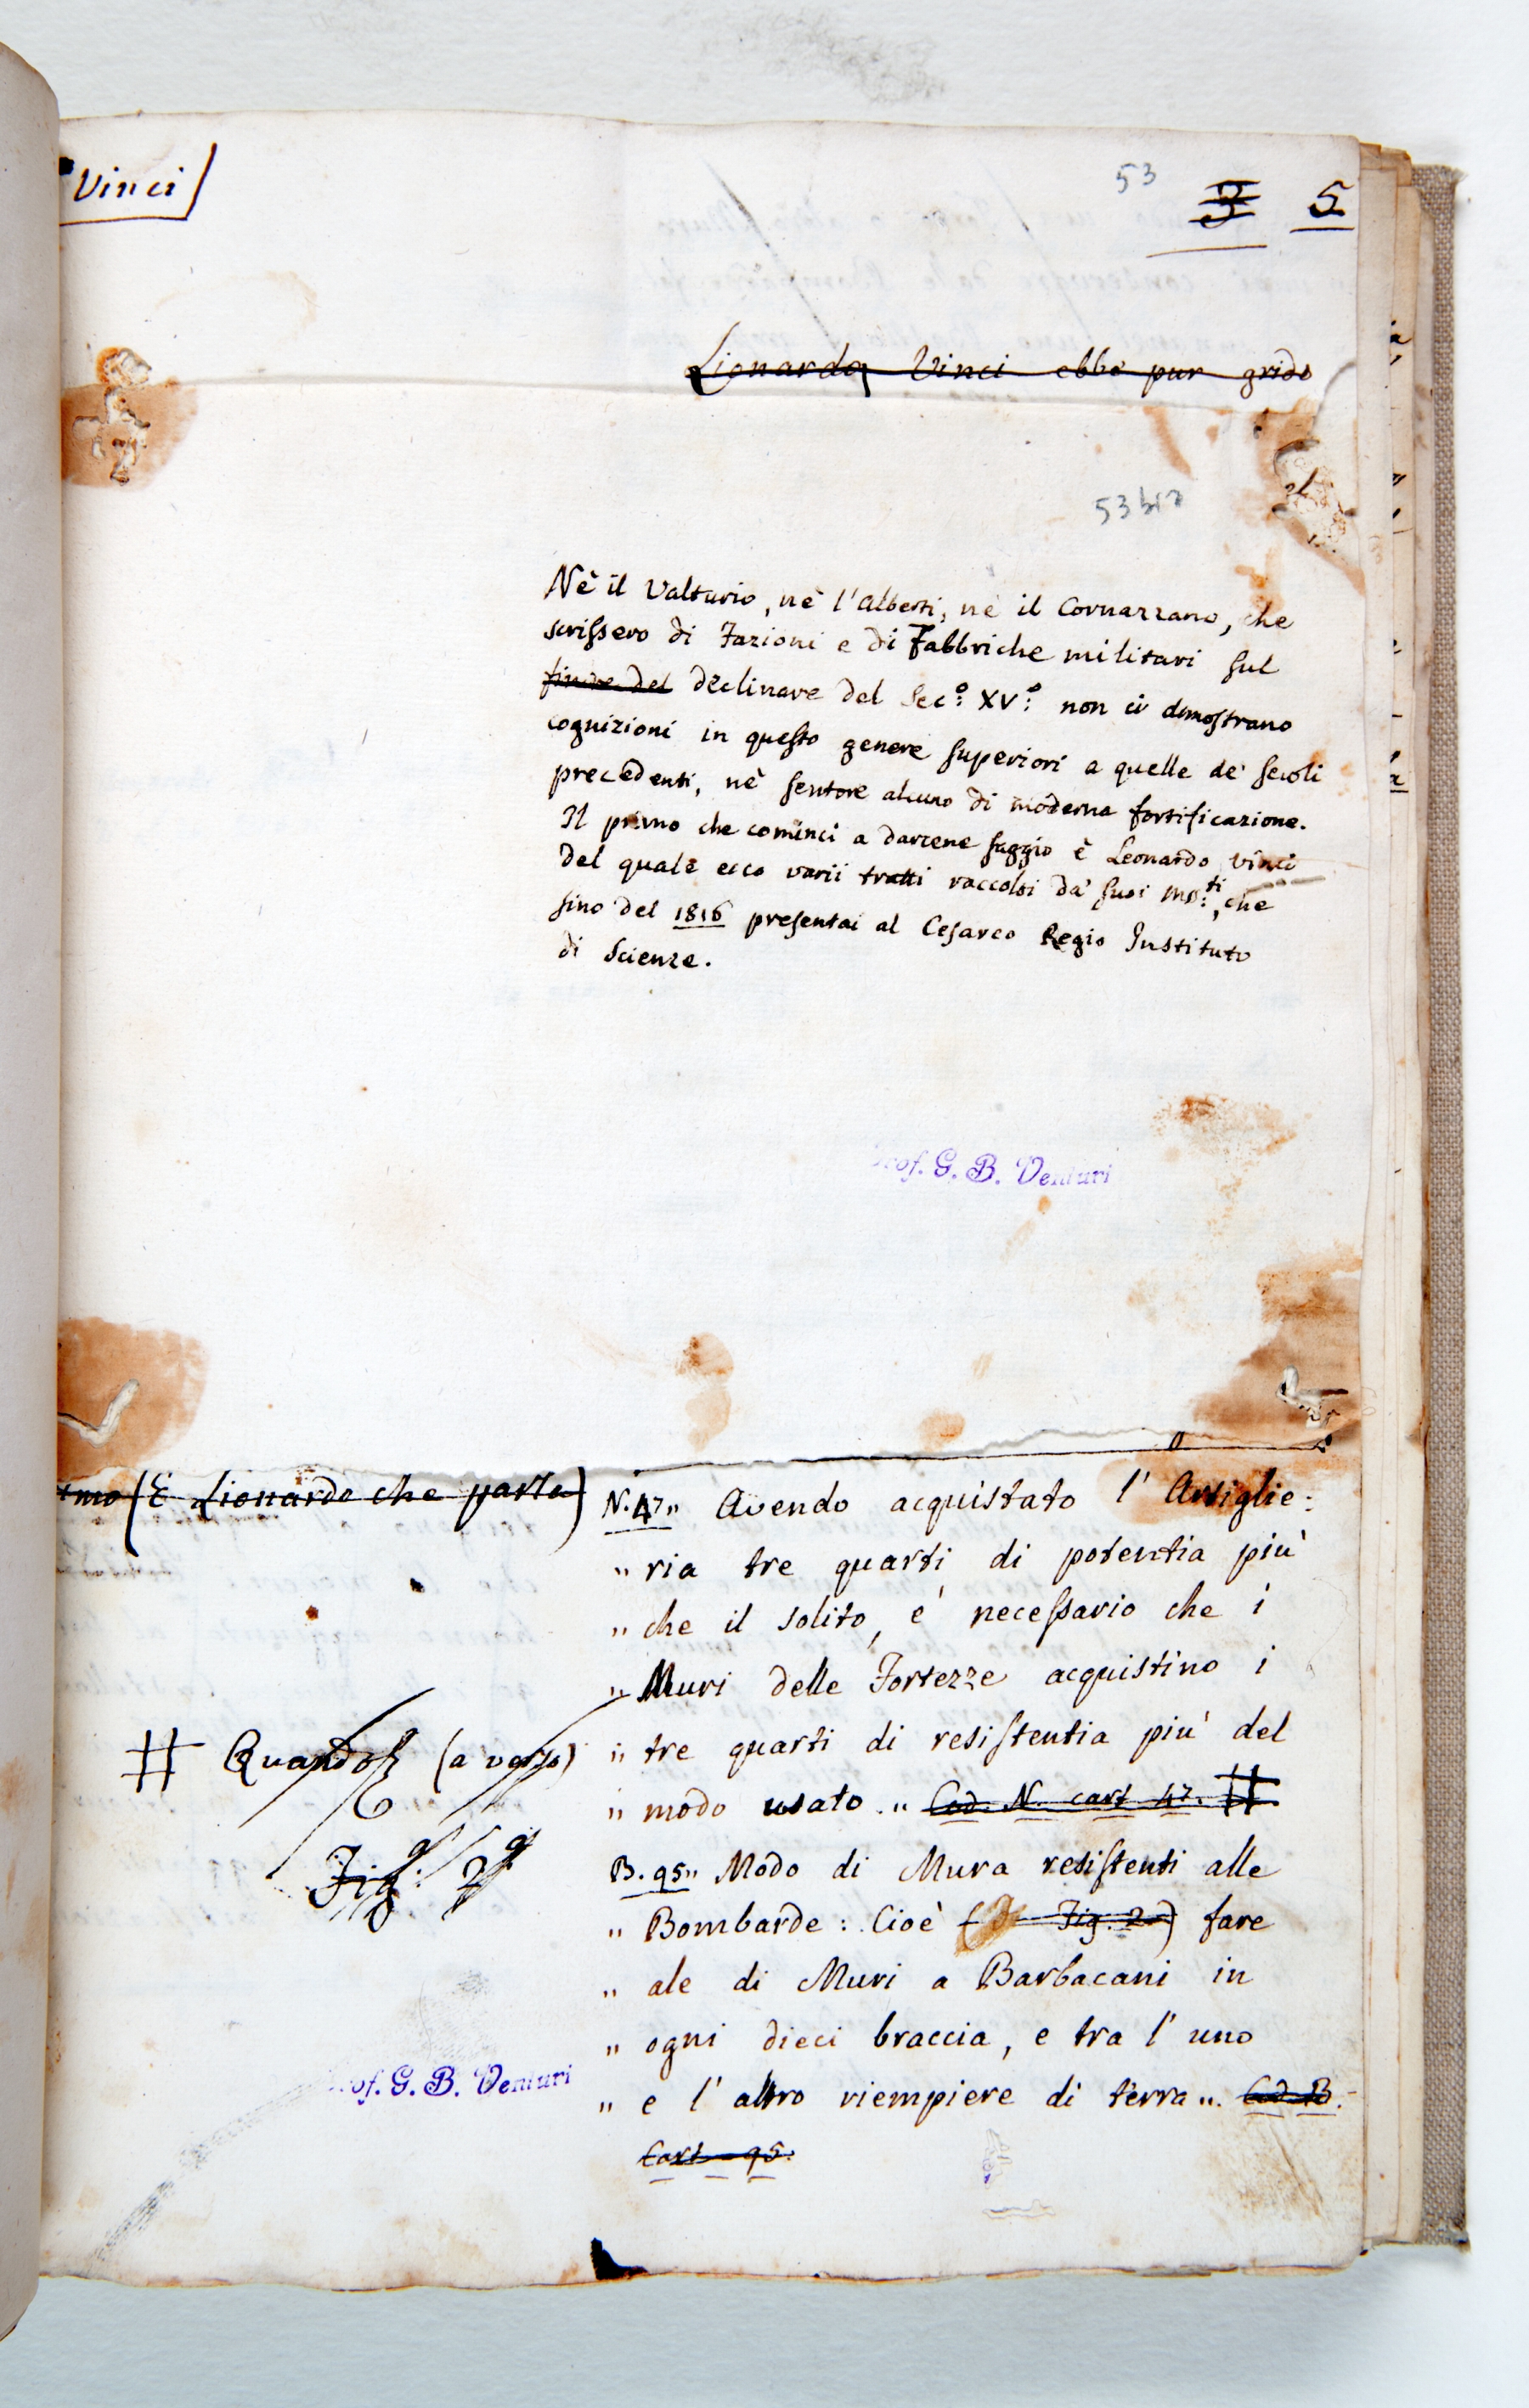 Vinci
53
3 5
Lionardo Vinci ebbe pur grido
53 bis
Nè il Valturio, nè l'Alberti, nè il Cornazzano, che
scrissero di Fazioni e di Fabbriche militari sul
finire del declinare del Sec:º XV:º non ci dimostrano
cognizioni in questo genere superiori a quelle de' secoli
precedenti, nè sentore alcuno di moderna fortificazione.
Il primo che cominci a darcene saggio è Leonardo Vinci
del quale ecco varii tratti raccolti da' suoi ms:ti, che
sino del 1816 presentai al Cesareo Regio Instituto
di Scienze.
Prof. G. B. Venturi
(È Lionardo che parla)
N. 47 " Avendo acquistato l' Artiglie:
" ria tre quarti di potentia più
" che il solito, è necessario che i
" Muri delle Fortezze acquistino i
" tre quarti di resistentia più del
" modo usato " Cod. N. cart 47. #
# Quando (a verso)
Fig. 2
B. 95 " Modo di Mura resistenti alle
" Bombarde: Cioè ( Fig. 2) fare
" ale di Muri a Barbacani in
" ogni dieci braccia, e tra l' uno
" e l' altro riempiere di terra ". Cod. B.
Cart. 95.
Prof. G. B. Venturi